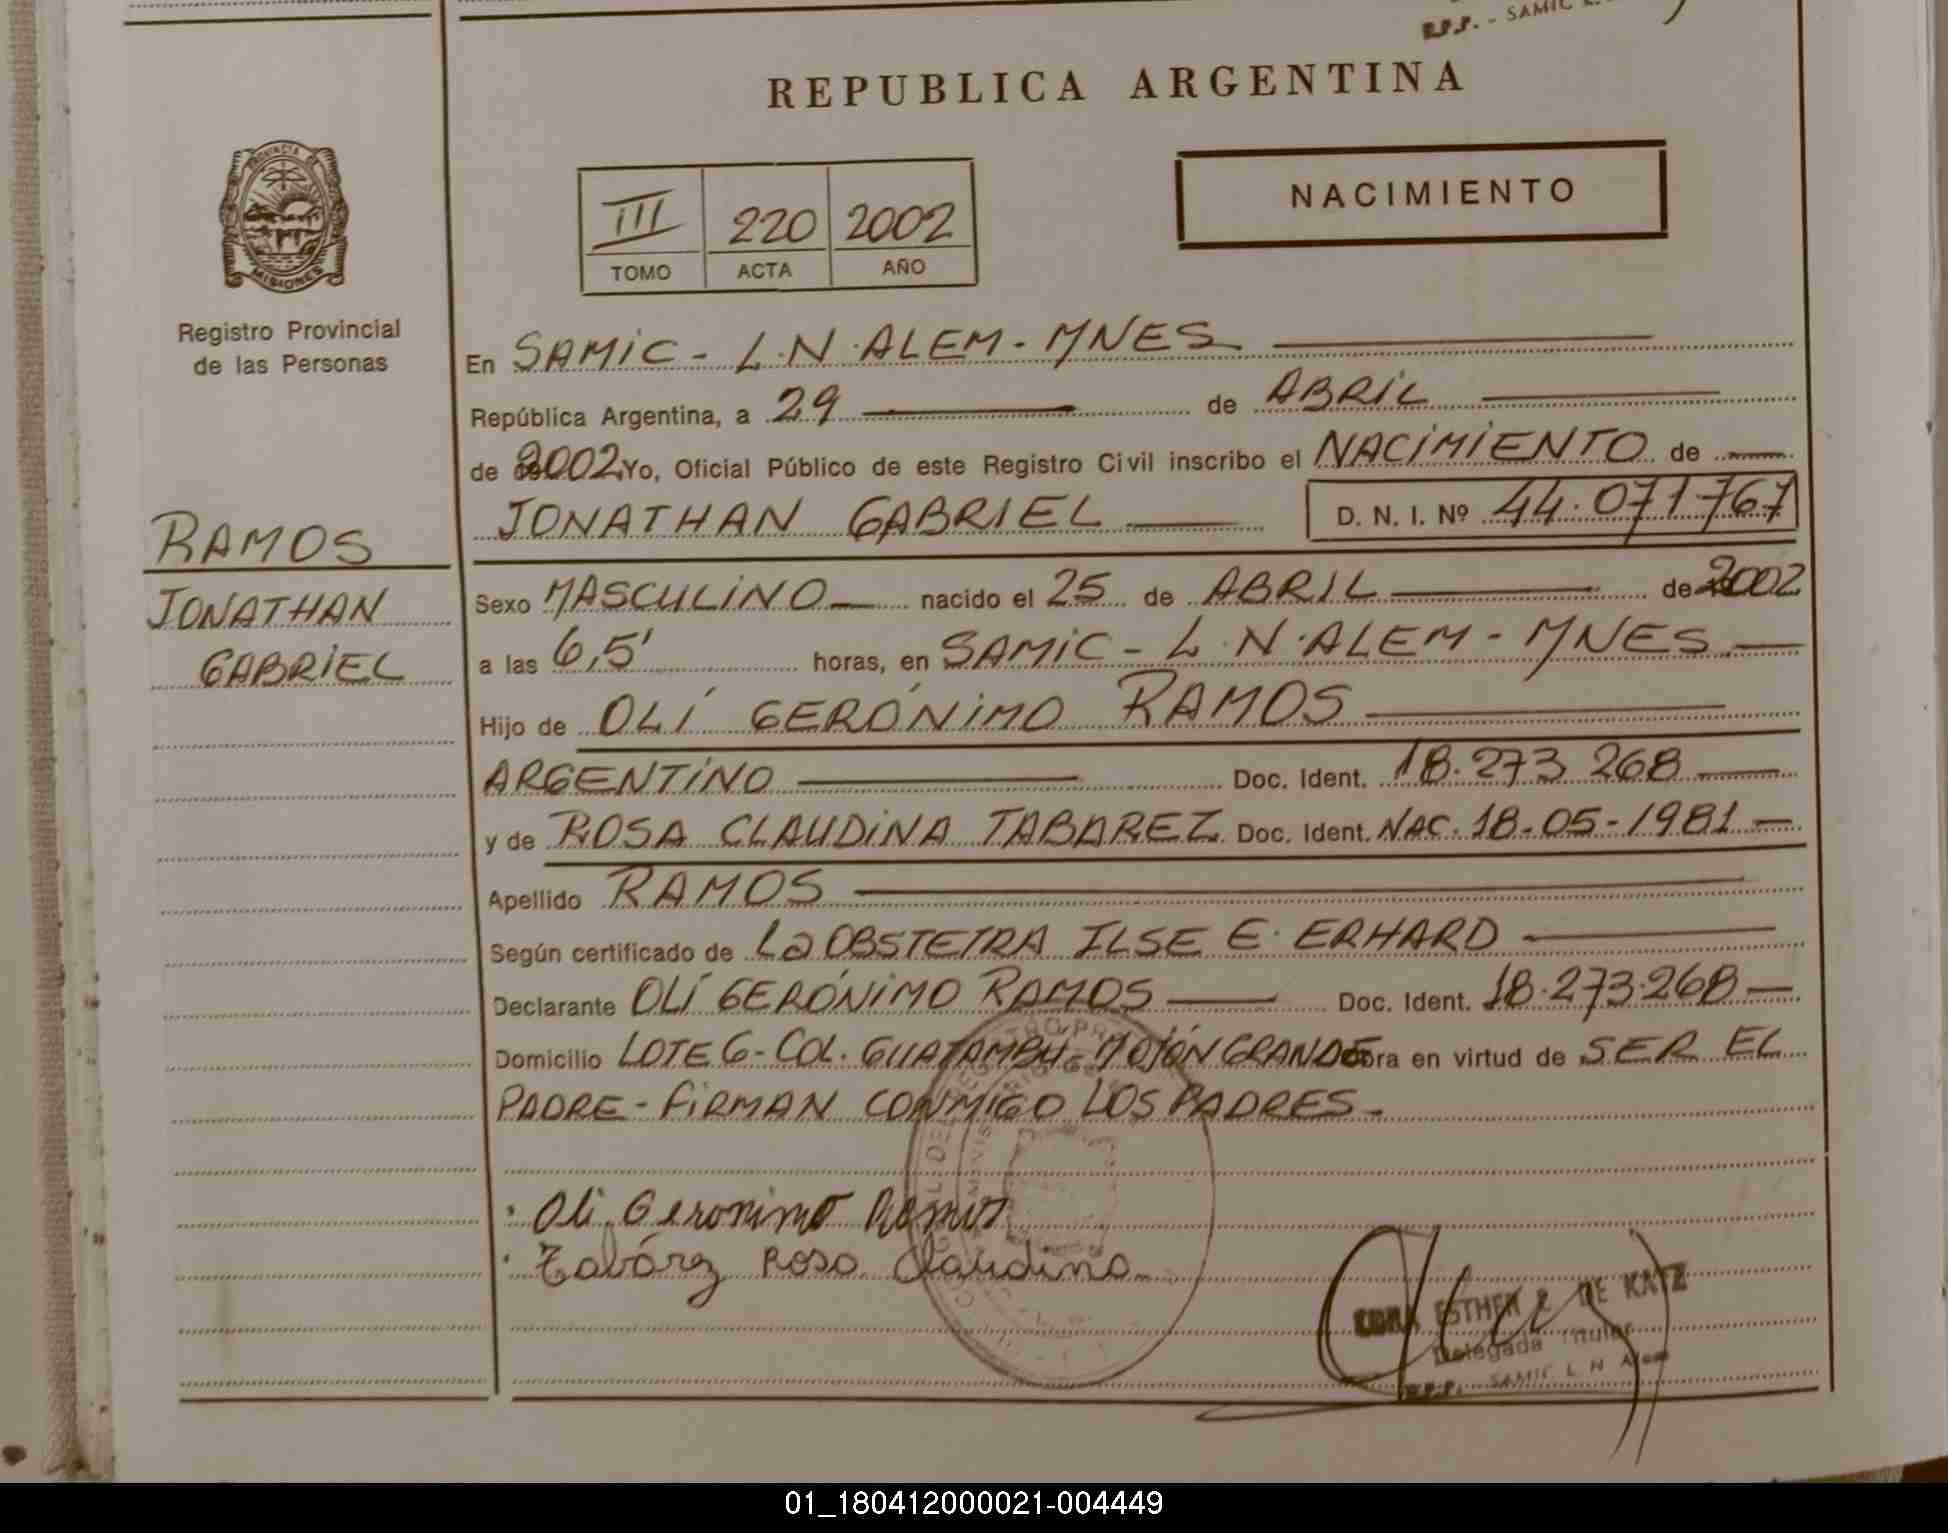 R.P.P. - SAMIC L.
REPUBLICA ARGENTINA
PROVINCIA DE
MISIONES
Registro Provincial
de las Personas
III 220 2002
TOMO ACTA AÑO
NACIMIENTO
En SAMIC - L.N. ALEM - MNES
República Argentina, a 29 de ABRIL
de 2002 Yo, Oficial Público de este Registro Civil inscribo el NACIMIENTO de
JONATHAN GABRIEL D. N. I. Nº 44.071.767
RAMOS
JONATHAN
GABRIEL
Sexo MASCULINO nacido el 25 de ABRIL de 2002
a las 6,5' horas, en SAMIC - L.N. ALEM - MNES
Hijo de OLÍ GERÓNIMO RAMOS
ARGENTINO Doc. Ident. 18.273.268
y de ROSA CLAUDINA TABAREZ Doc. Ident. NAC. 18-05-1981
Apellido RAMOS
Según certificado de La OBSTETRA ILSE E. ERHARD
Declarante OLÍ GERÓNIMO RAMOS Doc. Ident. 18.273.268
Domicilio LOTE 6 - COL. GUATAMBÚ - MOJÓN GRANDE obra en virtud de SER EL
PADRE - FIRMAN CONMIGO LOS PADRES -
Oli Geronimo Ramos
Tabárez Rosa Claudina
ESTHER DE KATZ
Delegada Titular
R.P.P. SAMIC L N Alem
01_180412000021-004449